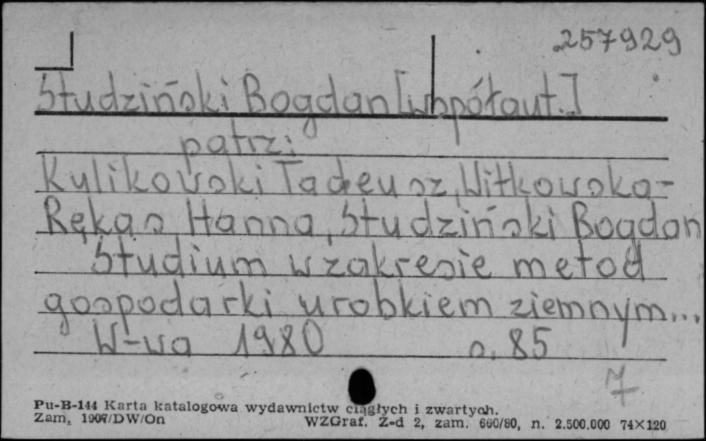 257929
Studziński Bogdan [współaut.]
patrz:
Kulikowski Tadeusz, Witkowska-
Rękas Hanna, Studziński Bogdan
Studium w zakresie metod
gospodarki urobkiem ziemnym...
W-wa 1980 s. 85
7
Pu-B-144 Karta katalogowa wydawnictw ciągłych i zwartych.
Zam. 1907/DW/On WZGraf. Z-d 2, zam. 660/80, n. 2.500.000 74×120